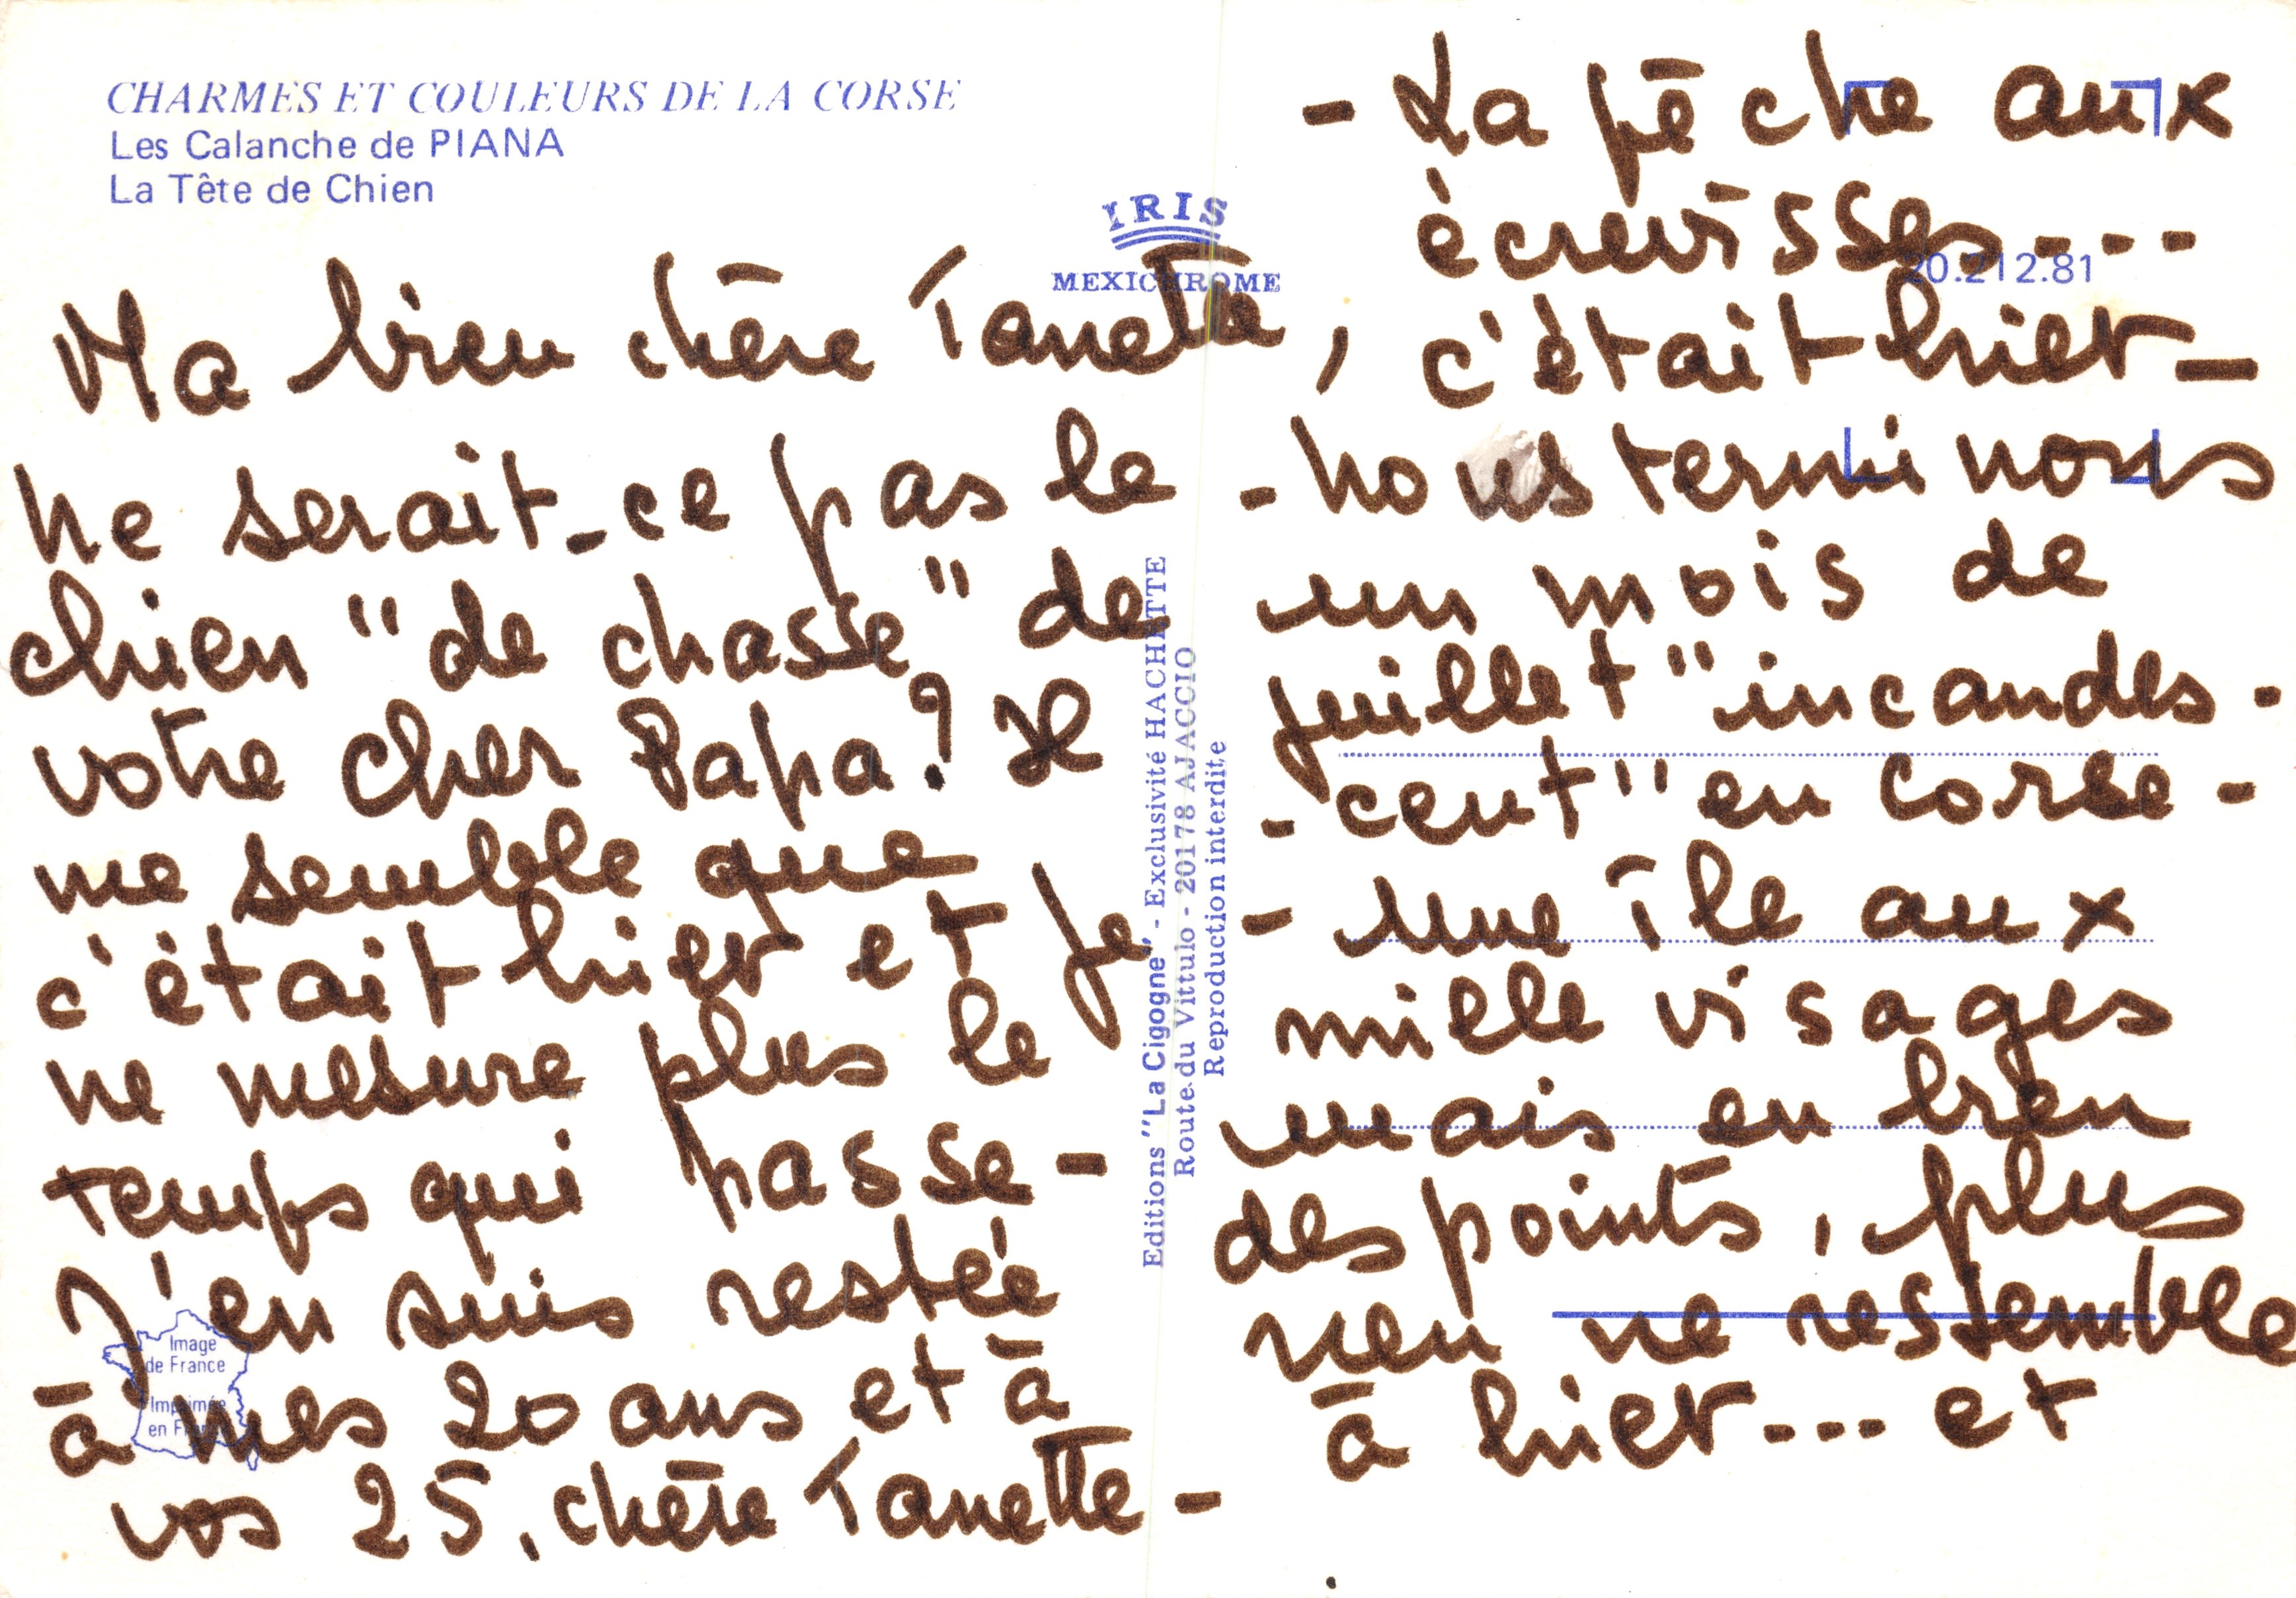 CHARMES ET COULEURS DE LA CORSE
Les Calanche de PIANA
La Tête de Chien
IRIS
MEXICHROME
Ma bien chère Tanette,
Ne serait-ce pas le
chien "de chasse" de
votre cher Papa? Il
me semble que
c'était hier et je
ne mesure plus le
temps qui passe -
J'en suis restée
à mes 20 ans et à
vos 25, chère Tanette -
Image
de France
Imprimée
en France
Editions "La Cigogne" - Exclusivité HACHETTE
Route du Vittulo - 20178 AJACCIO
Reproduction interdite
- La pêche aux
écrevisses - - -
20.212.81
c'était hier -
- nous terminons
un mois de
juillet "incandes -
- cent" en Corse -
- une île aux
mille visages
mais en bien
des points, plus
rien ne ressemble
à hier... et